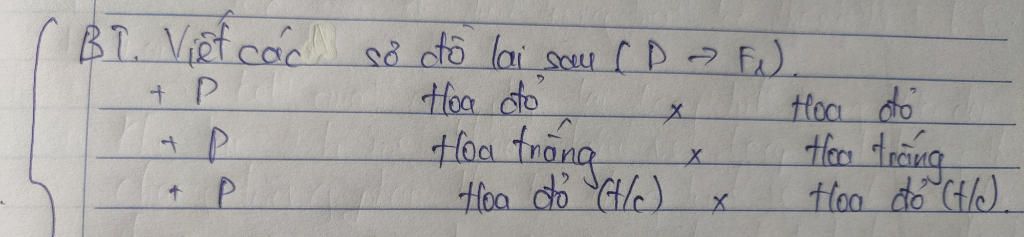 BT. Viết các sơ đồ lai sau (P → F1).
+ P Hoa đỏ x Hoa đỏ
+ P Hoa trắng x Hoa trắng
+ P Hoa đỏ (t/c) x Hoa đỏ (t/c).